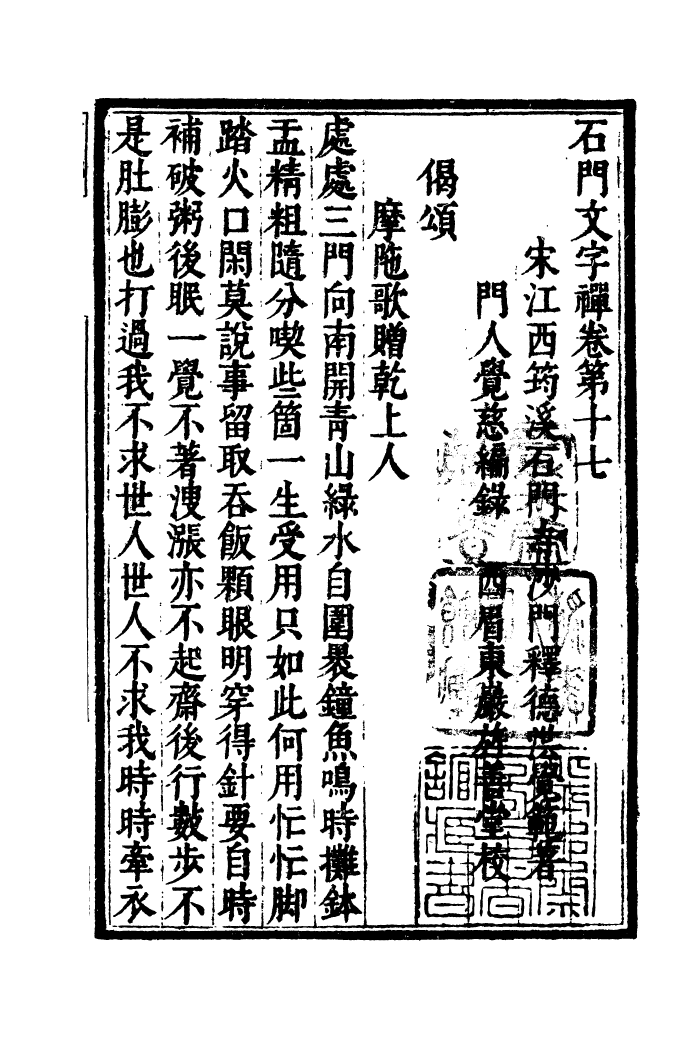 石門文字禪卷第十七
宋江西筠溪石門寺沙門釋德洪覺範著
門人覺慈編錄　西眉東巖旌善堂校
偈頌
摩陁歌贈乾上人
處處三門向南開青山綠水自圍褁鐘魚鳴時攤鉢
盂精粗隨分喫些箇一生受用只如此何用忙忙脚
踏火口閑莫說事留取吞飯顆眼明穿得針要自時
補破粥後眠一覺不著洩漲亦不起齋後行數步不
是肚膨也打過我不求世人世人不求我時時牽衣